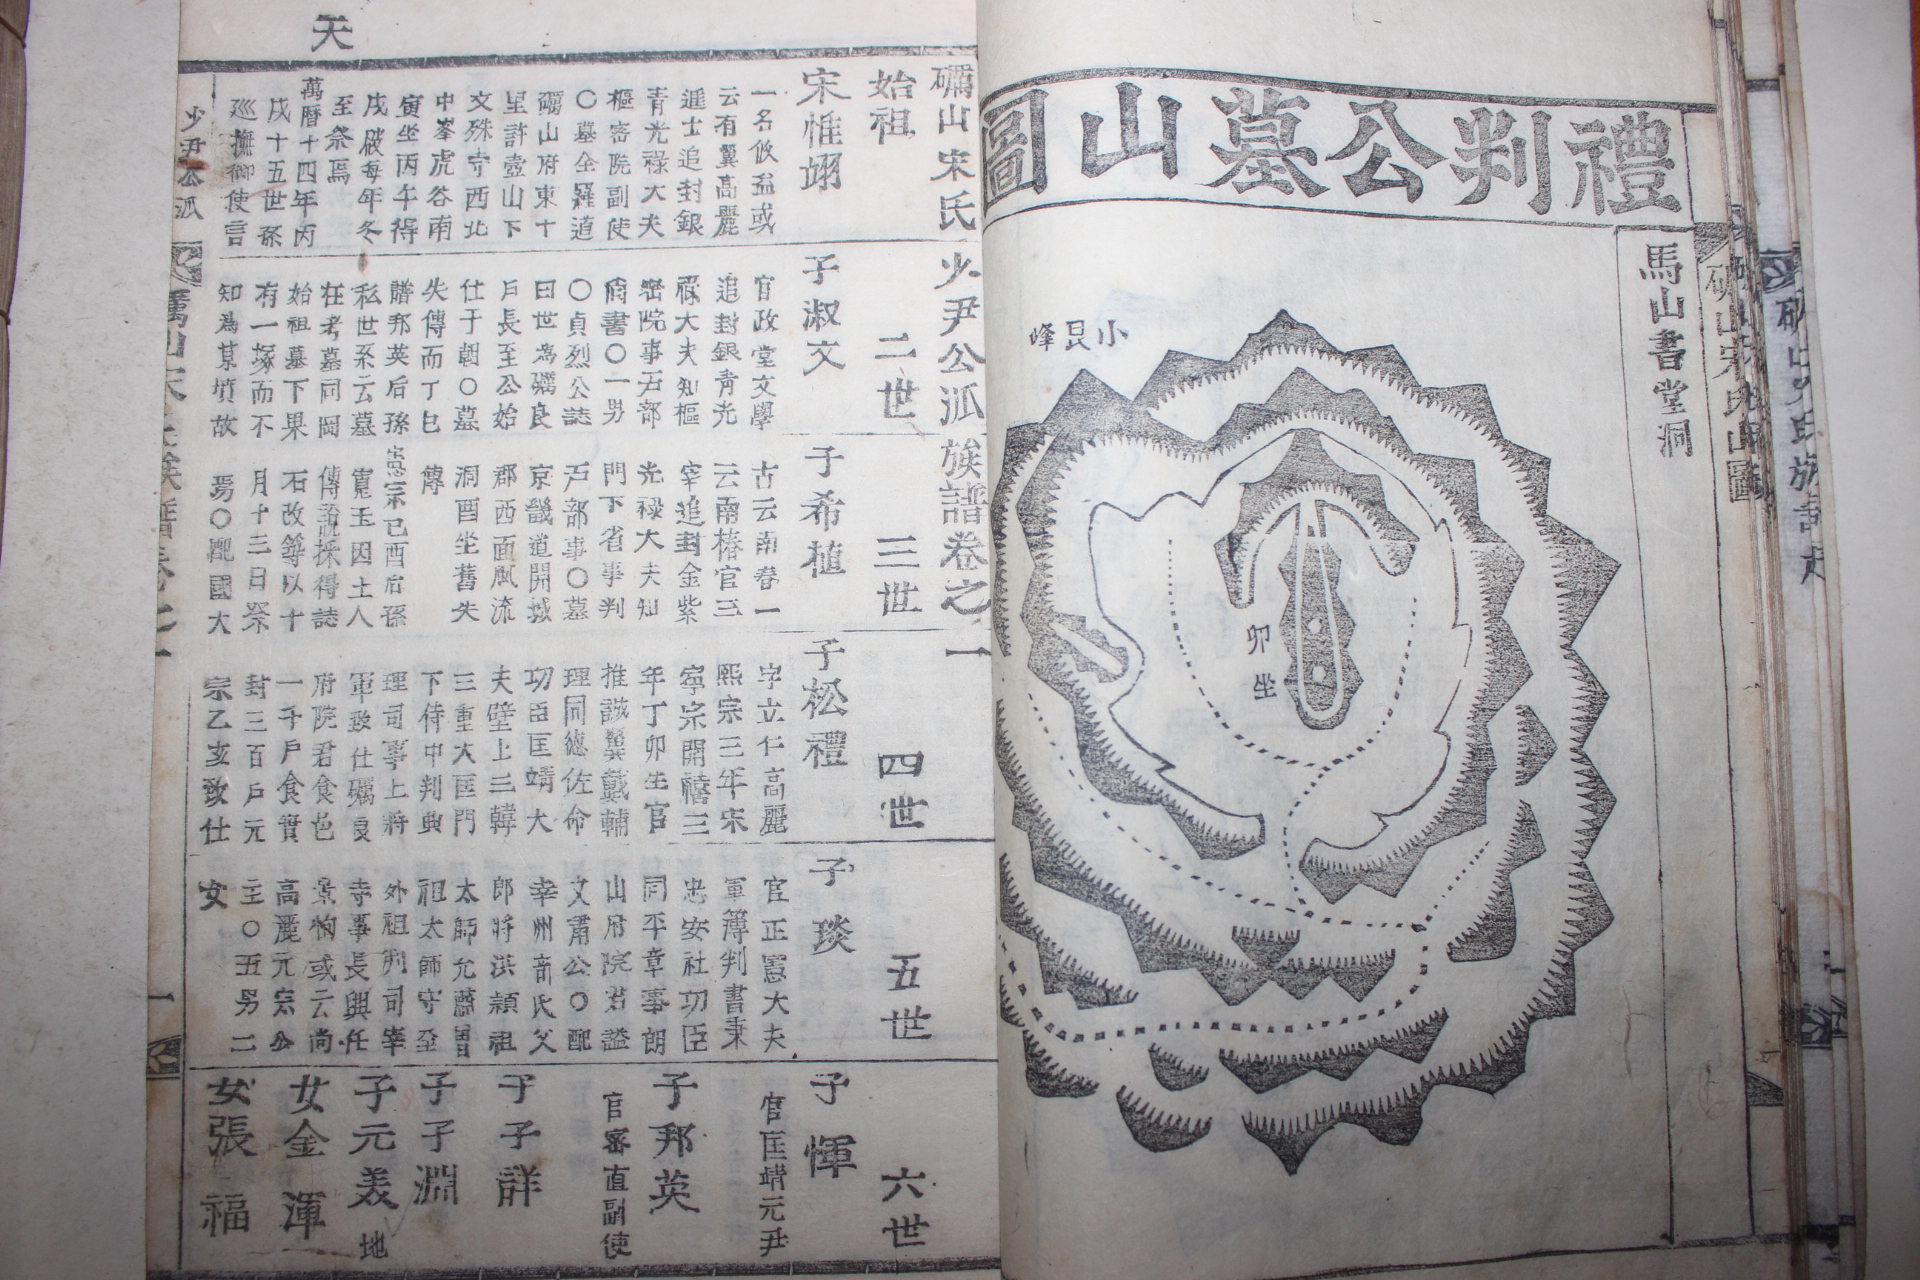 禮判公墓山圖
馬山書堂洞
小艮峰
卯坐
礪山宋氏少尹公派族譜卷之一
始祖
二世
三世
四世
五世
六世
天
宋惟翊
一名攸益或
云有翼高麗
進士追封銀
青光祿大夫
樞密院副使
○墓全羅道
礪山府東十
里許壺山下
文殊寺西北
中峯虎谷南
寅坐丙午得
戌破每年冬
至祭焉
萬曆十四年丙
戌十五世孫
巡撫御使言
子淑文
官政堂文學
追封銀青光
祿大夫知樞
密院事右部
尙書○一男
○貞烈公誌
曰世為礪良
戶長至公始
仕于朝○墓
失傳而丁巳
譜邦英后孫
私世系云墓
在考墓同岡
始祖墓下果
有一塚而不
知為某墳故
子希植
古云南春一
云南椿官三
宰追封金紫
光祿大夫知
門下省事判
戶部事○墓
京畿道開城
郡西面風流
洞酉坐舊失
傳
憲宗己酉后孫
寬玉因土人
傳說採得誌
石改築以十
月十三日祭
焉○配國大
子松禮
字立仁高麗
熙宗三年宋
寧宗開禧三
年丁卯生官
推誠翼戴輔
理同德佐命
功臣匡靖大
夫壁上三韓
三重大匡門
下侍中判典
理司事上將
軍致仕礪良
府院君食邑
一千戶食實
封三百戶元
宗乙亥致仕
子琰
官正憲大夫
軍簿判書秉
忠安社功臣
同平章事朗
山府院君諡
文肅公○配
幸州奇氏父
郎將洪穎祖
太師允肅曾
祖太師守全
外祖判司宰
寺事長興任
景恂或云尚
高麗元宗公
主○五男二
女
子惲
官匡靖元尹
子邦英
官密直副使
子子詳
子子淵
子元美
地
女金渾
女張福
少尹公派
礪山宋氏族譜卷之一
一